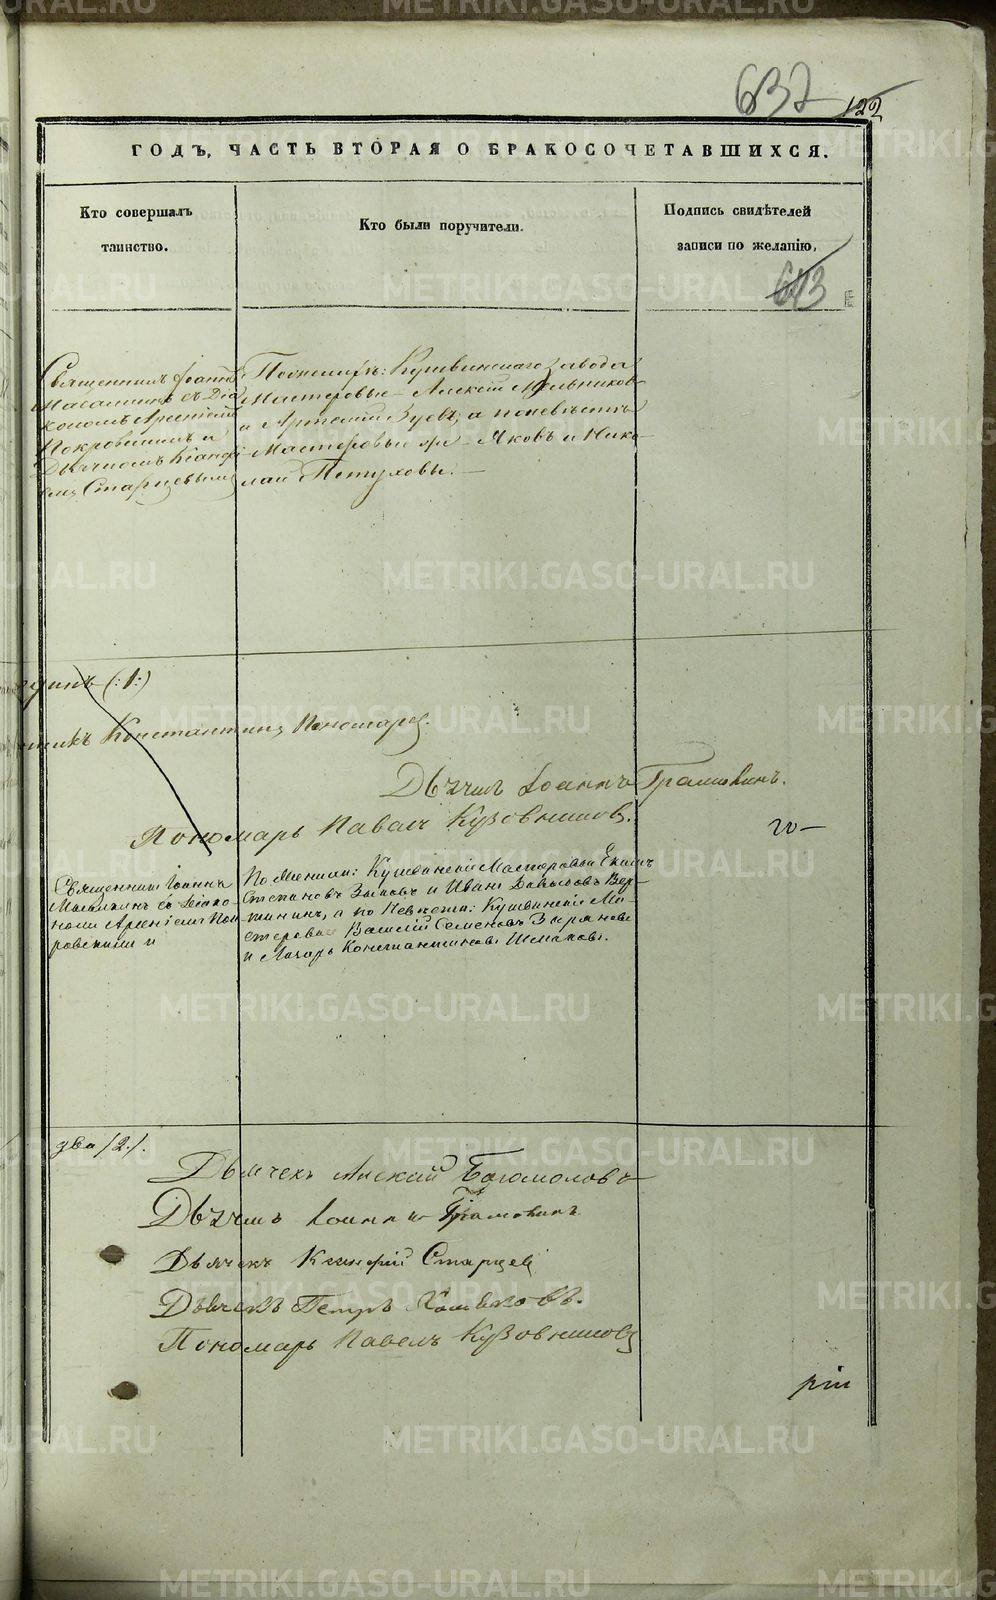 637 122
ГОДЪ, ЧАСТЬ ВТОРАЯ О БРАКОСОЧЕТАВШИХСЯ.
Кто совершалъ
таинство.
Кто были поручители.
Подпись свидѣтелей
записи по желанію.
643
Священникъ Іоаннъ
съ Діа
кономъ Арсеніемъ
Покровскимъ и
Дьячкомъ
емъ Старцевымъ
По женихѣ: Кушвинскаго завода
Мастеровые Алексѣй Мельников
и Артемій Зуевъ, а по невѣстѣ
Мастеровые Яковъ и Нико-
лай Петуховы.
(:1:)
Константинъ Пономарев.
Дьячекъ Іоаннъ Грамовинъ.
Пономарь Павелъ Кузовниковъ.
Священникъ Іоаннъ
съ Діако-
номъ Арсеніемъ Пок
ровскимъ и
По Женихѣ: Кушвинскій Мастеровый Екимъ
Степановъ Зыковъ и Иванъ Давыдовъ Вер-
шининъ, а по Невѣстѣ: Кушвинскіе Ма-
стеровые Василій Семеновъ Зыряновъ
и Лазарь Константиновъ Шмаковъ.
два /2./.
Дьячекъ Алексѣй Богомоловъ
Дьячекъ Іоаннъ Грамовинъ
Дьячекъ Старцевъ
Дьячекъ Петръ
Пономарь Павелъ Кузовниковъ
METRIKI.GASO-URAL.RU